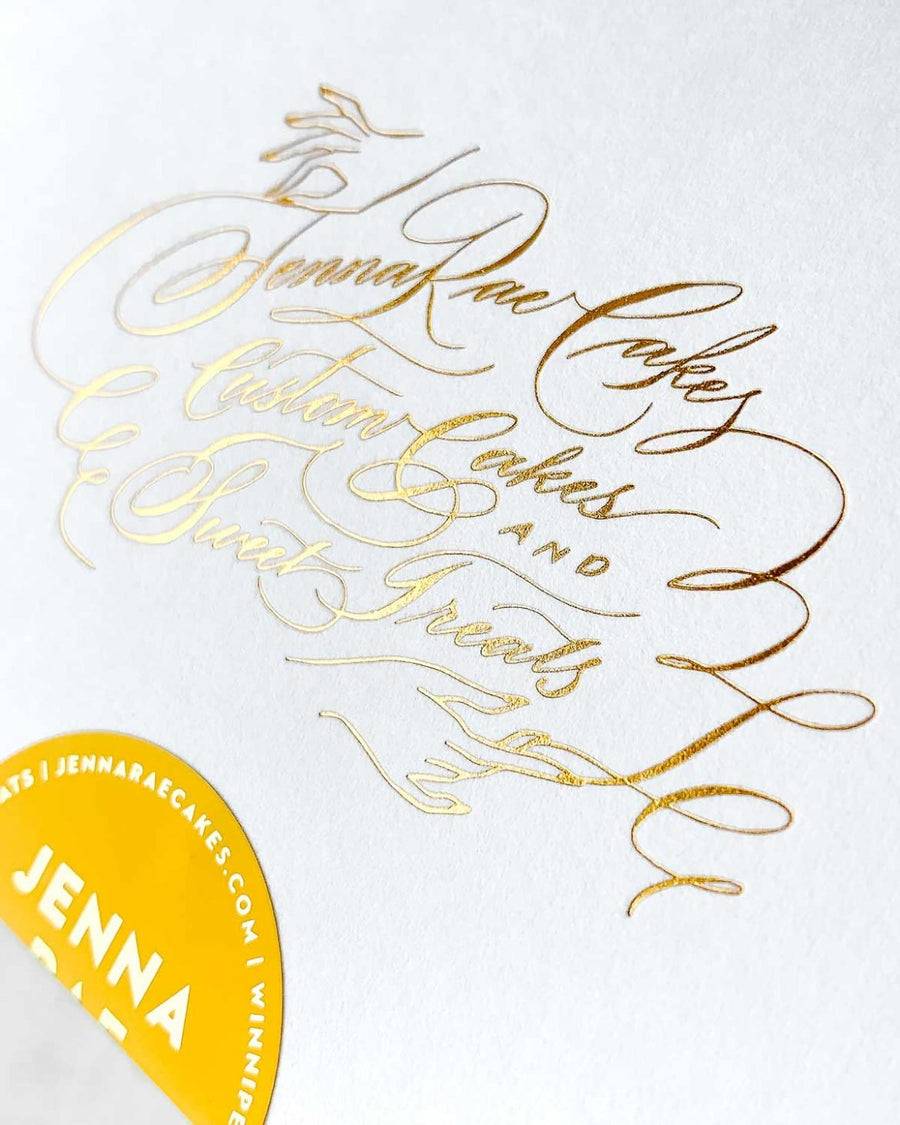 Jenna Rae Cakes
Custom Cakes
AND
Sweet Treats
JENNARAECAKES.COM |
JENNA